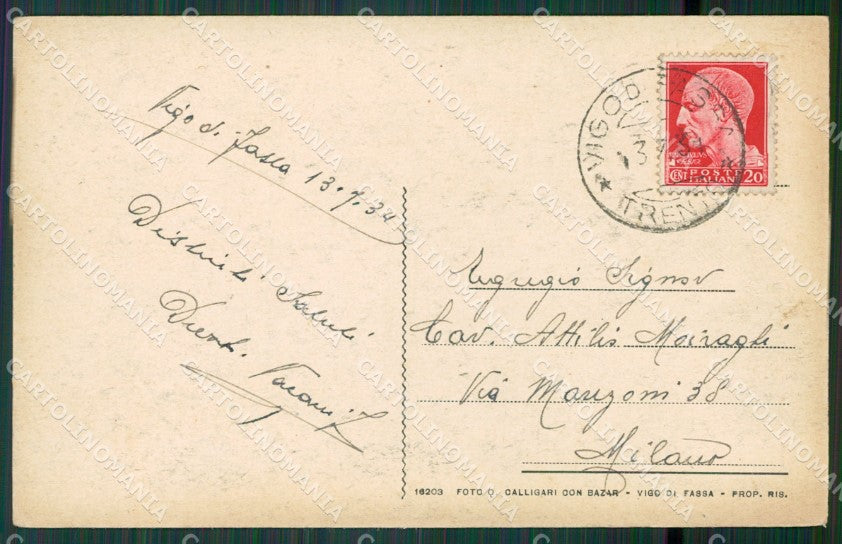 Vigo di Fassa 13.7.34
Distinti Saluti
VIGO DI FASSA
TRENTO
POSTE
ITALIANE
CENT 20
Egregio Signor
Cav. Attilio Moiraghi
Via Manzoni 38
Milano
16203 FOTO D. CALLIGARI CON BAZAR - VIGO DI FASSA - PROP. RIS.
CARTOLINOMANIA